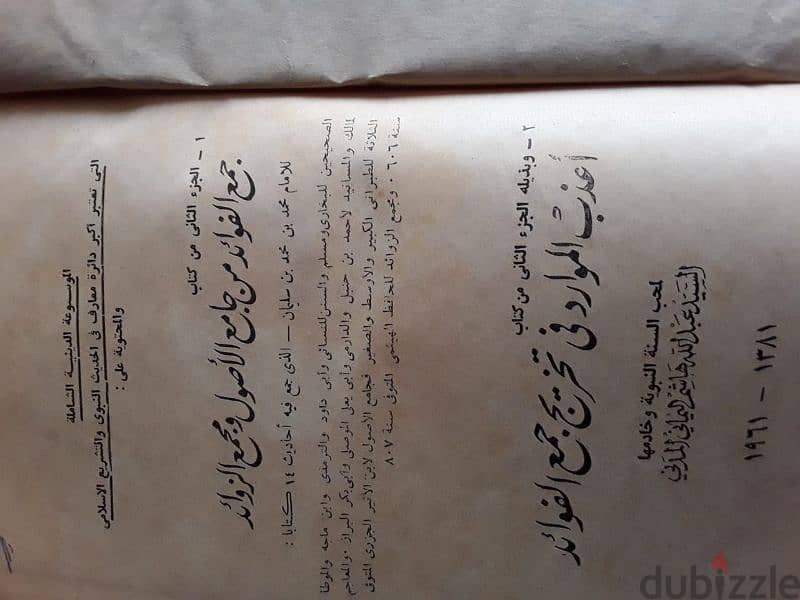 الموسوعة الدينية الشاملة
التى تعتبر اكبر دائرة معارف فى الحديث النبوى والتشريع الاسلامى
والمحتوية على :
١ - الجزء الثانى من كتاب
جمع الفوائد من جامع الأصول ومجمع الزوائد
للامام محمد بن محمد بن سليمان – الذى جمع فيه أحاديث ١٤ كتابا :
الصحيحين للبخارى ومسلم والسنن للنسائى وأبى داود والترمذى وابن ماجه والموطا
لمالك والمسانيد لأحمد بن حنبل والدارمى وأبى يعلى الموصلى وأبى بكر البزار والمعاجم
الثلاثة للطبرانى الكبير والأوسط والصغير فجامع الأصول لابن الأثير الجزرى المتوفى
سنة ٦٠٦ ومجمع الزوائد للحافظ الهيثمى المتوفى سنة ٨٠٧
٢ - وبذيله الجزء الثانى من كتاب
أعذب الموارد فى تخريج جمع الفوائد
لمحب السنة النبوية وخادمها
السيد عبد الله هاشم اليمانى المدنى
١٣٨١ - ١٩٦١
dubizzle